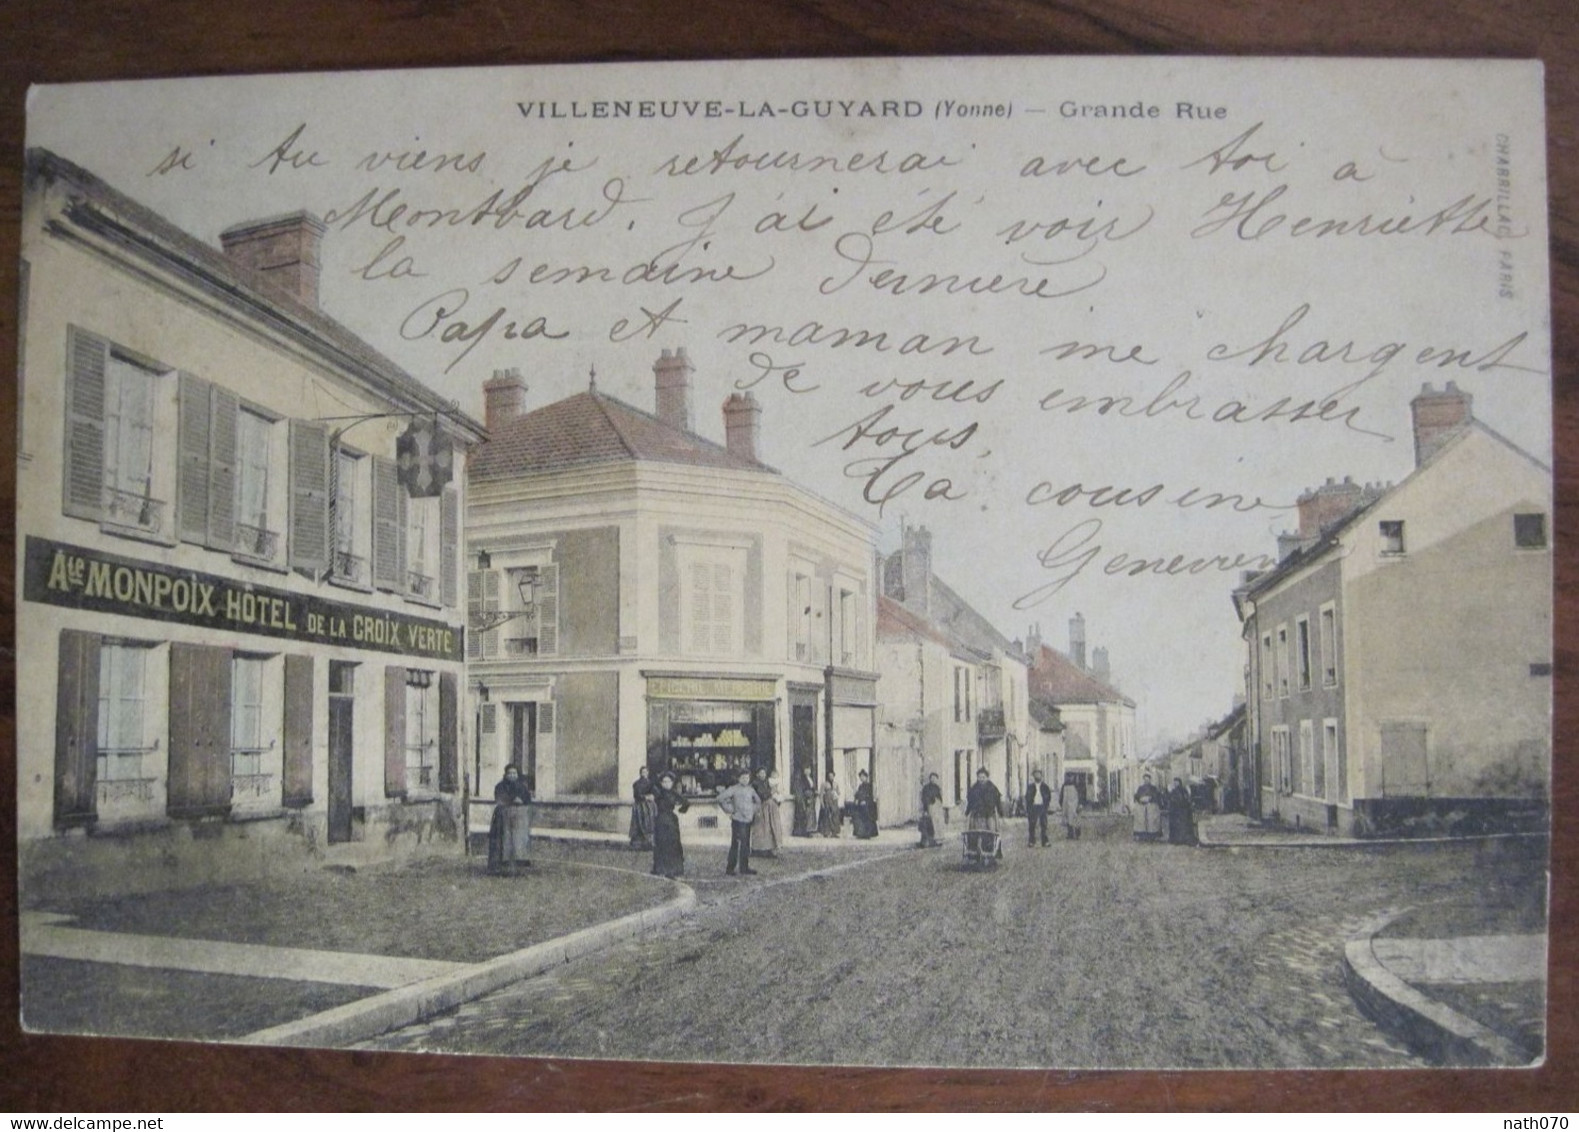 VILLENEUVE-LA-GUYARD (Yonne) — Grande Rue
CHARRILLAC PARIS
si tu viens je retournerai avec toi à
Montbard. J'ai été voir Henriette
la semaine dernière
Papa et maman me chargent
de vous embrasser
tous.
Ta cousine
ALE MONPOIX HÔTEL DE LA CROIX VERTE
www.delcampe.net
nath070